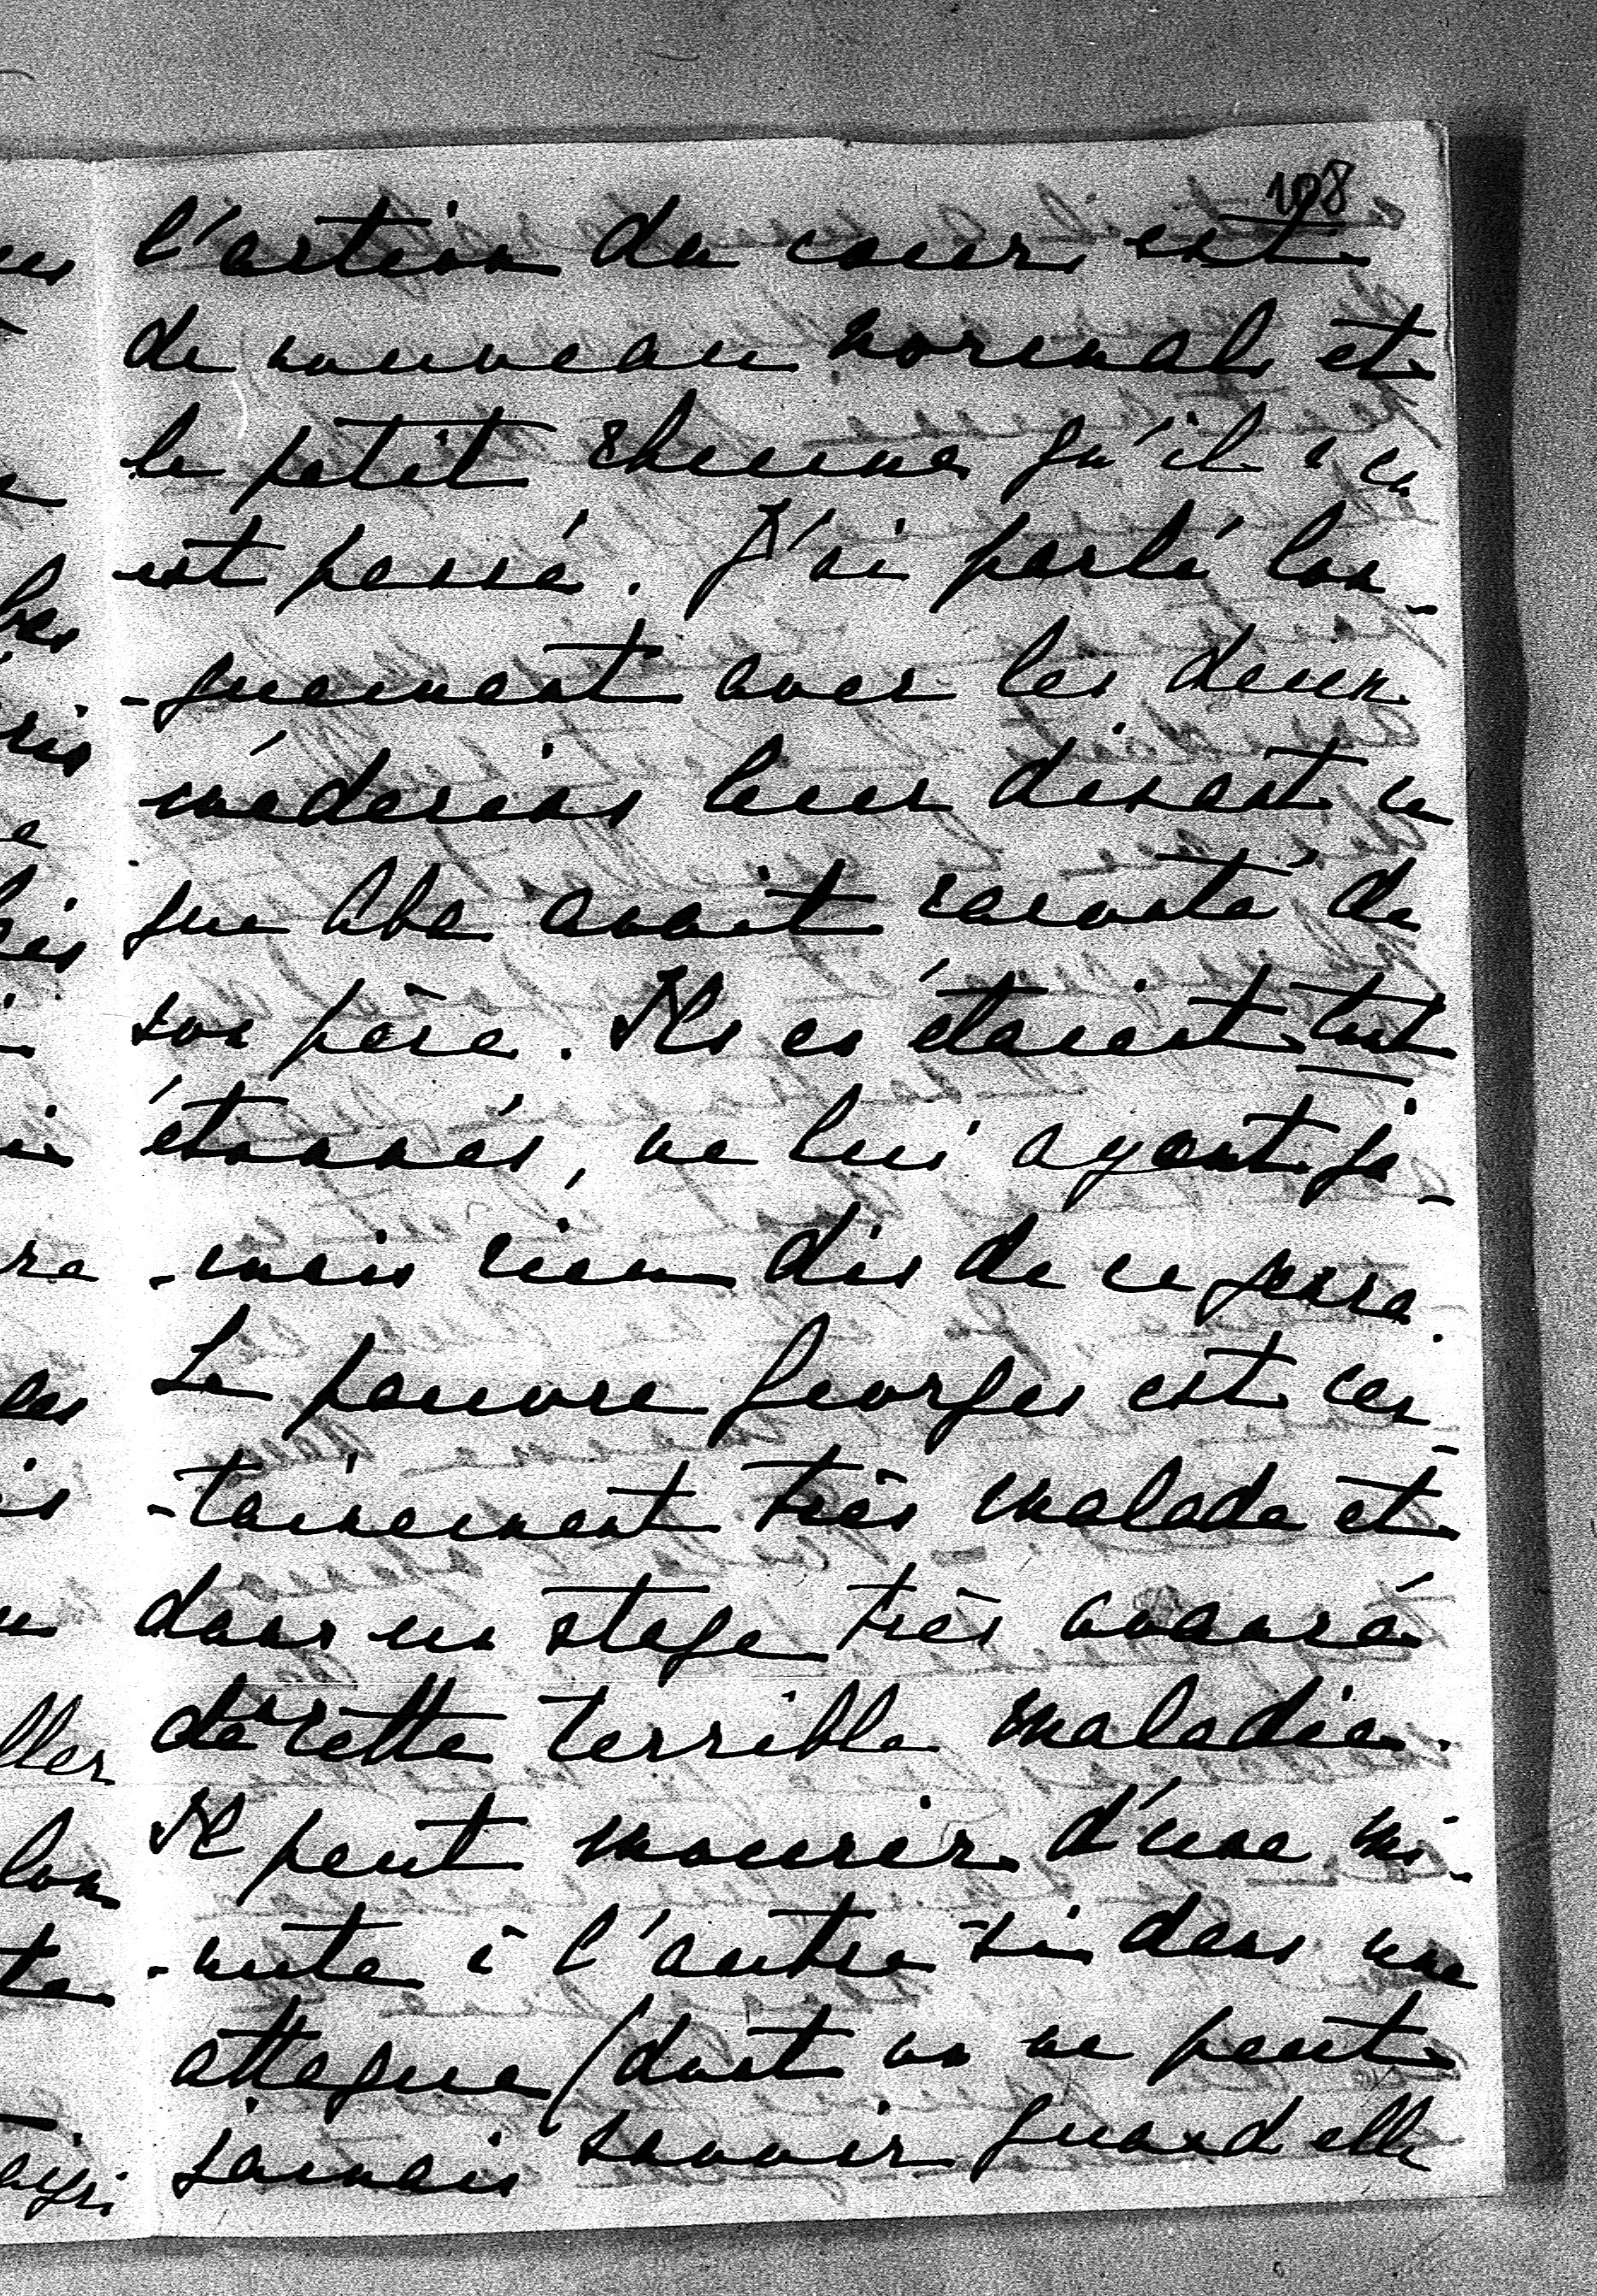 108
l'action du cœur est
de nouveau normale et
le petit rhume qu'il a eu
est passé. J'ai parlé lon-
-guement avec les deux
médecins leur disant ce
que Aba avait raconté de
son père. Ils en étaient tout
étonnés, ne lui ayant ja-
-mais rien dis de ce genre.
Le pauvre Georges est cer-
-tainement très malade et
dans un stage très avancé
de cette terrible maladie.
Il peut mourir d'une mi-
-nute à l'autre si dans une
attaque (dont on ne peut
jamais savoir quand elle